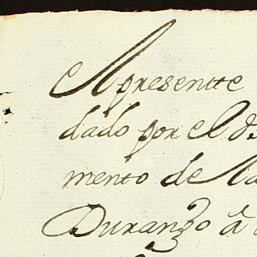 Apresentte
dado por el
mento de
Durango â